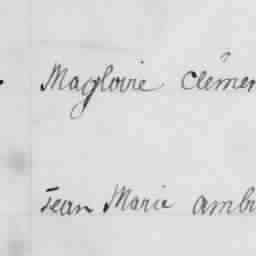 Magloire Clémen
Jean Marie ambr